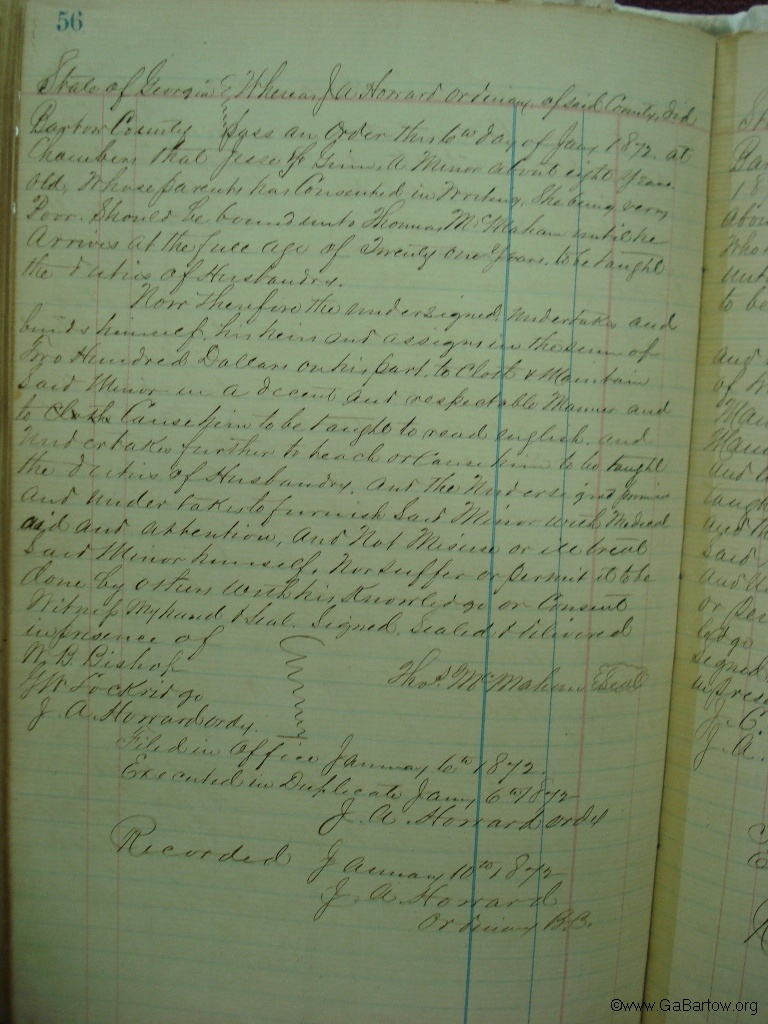 56
State of Georgia } Whereas J A Howard ordinary of said County, did
Bartow County } pass an order this 6th day of Jany 1872 at
Chambers that Jesse Ginn, A Minor about eight years
old, Whose parents has Consented in Writing, she being very
Poor. Should be bound unto Thomas McMahan until he
Arrives at the full age of Twenty one years, to be taught
the duties of Husbandry.
Now Therefore the undersigned, undertakes and
binds himself, his heirs and assigns in the sum of
Two Hundred Dollars on his part, to Cloth & Maintain
Said Minor in a decent and respectable Manner and
to Cause him to be taught to read english. and
undertakes further to teach or Cause him to be taught
the duties of Husbandry. And the Undersigned promise
and undertakes to furnish Said Minor with Medical
aid and attention, And Not Misuse or ill treat
Said Minor himself, Nor suffer or permit it to be
done by others with his Knowledge or Consent
Witness My hand & Seal. Signed, Sealed & delivered
in presence of
W. B. Bishop
J. A. Howard ordy.
Thos. McMahan Seal
Filed in Office January 6th 1872.
Executed in Duplicate Jany 6th 1872
J. A. Howard ordy
Recorded January 10th 1872
J. A. Howard
Ordinary B.C.
©www.GaBartow.org